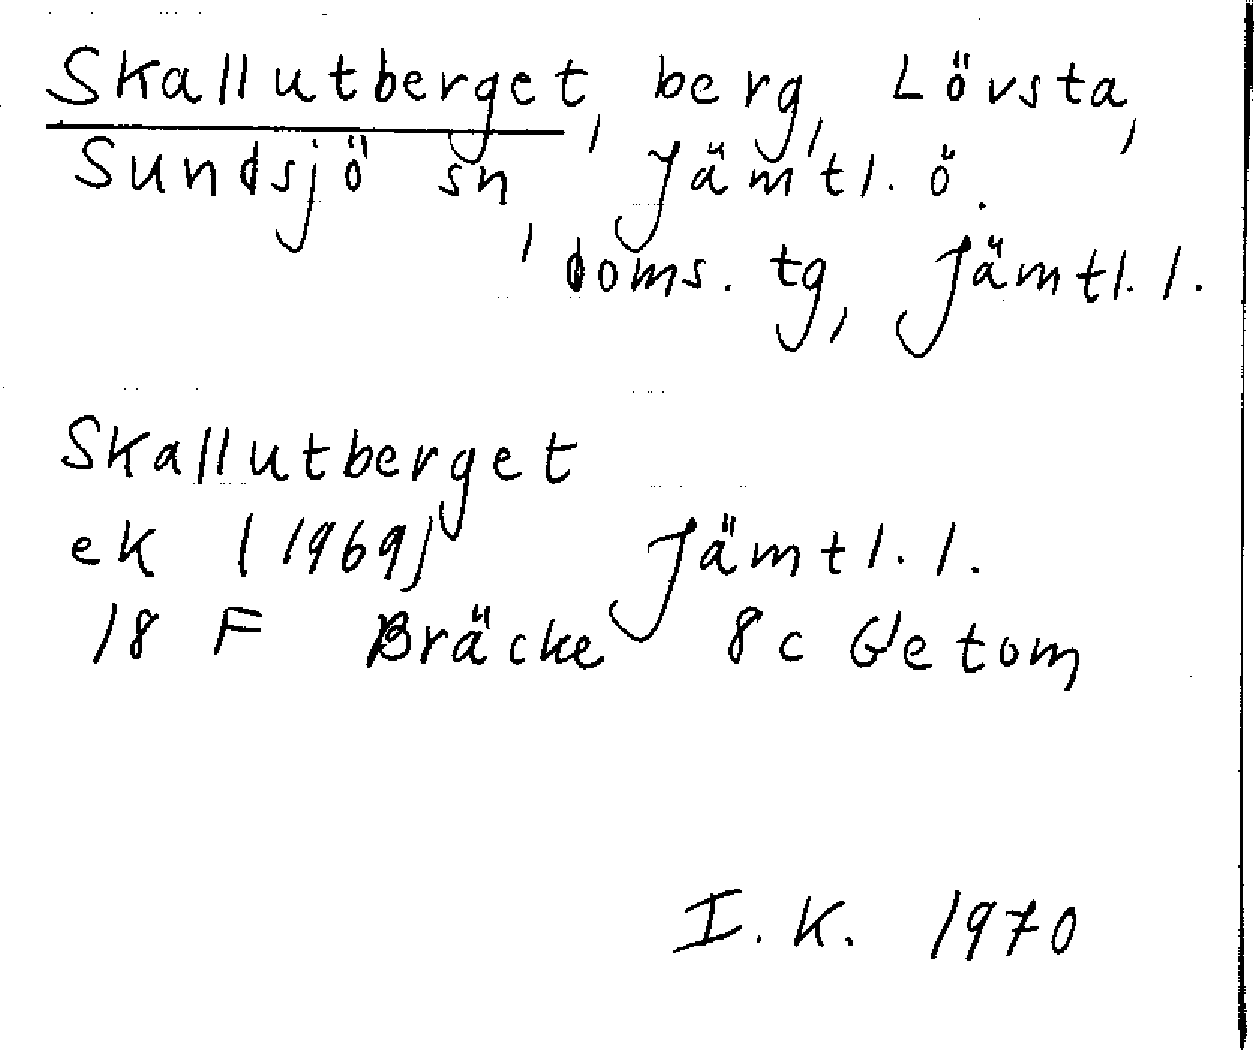 Skallutberget, berg, Lövsta,
Sundsjö sn, Jämtl. ö.
doms. tg, Jämtl. l.
Skallutberget
ek (1969) Jämtl. l.
18 F Bräcke 8c Getom
I. K. 1970